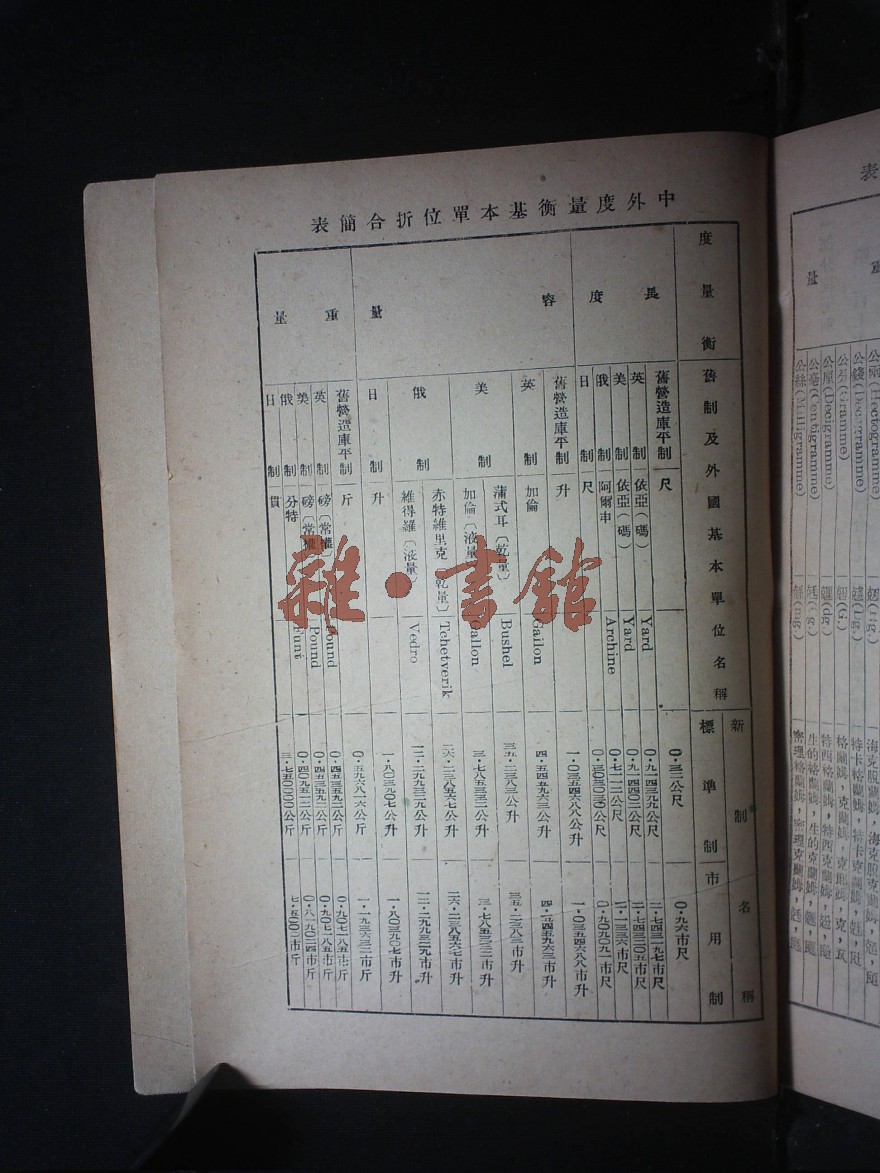 中外度量衡基本單位折合簡表
度量衡 舊制及外國基本單位名稱 新制名稱 標準制 市用制
長度 舊營造庫平制 尺 〇・三二公尺 〇・九六市尺
英制 依亞(碼) Yard 〇・九一四三九九公尺 二・七四三一九七市尺
美制 依亞(碼) Yard 〇・九一四四〇二公尺 二・七四三二〇五市尺
俄制 阿爾申 Archine 〇・七一一二公尺 二・一三三六市尺
日制 尺 〇・三〇三〇三〇公尺 〇・九〇九〇九一市尺
容量 舊營造庫平制 升 一・〇三五四六八八公升 一・〇三五四六八八市升
英制 加倫 Gallon 四・五四五九六三公升 四・五四五九六三市升
美制 蒲式耳(乾量) Bushel 三五・二三八三公升 三五・二三八三市升
加倫(液量) Gallon 三・七八五三三二公升 三・七八五三三二市升
俄制 赤特維里克(乾量) Tchetverik 二六・二三八五六七公升 二六・二三八五六七市升
維得羅(液量) Vedro 一二・二九九三二九公升 一二・二九九三二九市升
日制 升 一・八〇三九〇七公升 一・八〇三九〇七市升
重量 舊營造庫平制 斤 〇・五九六八一六公斤 一・一九三六三二市斤
英制 磅(常權) Pound 〇・四五三五九二公斤 〇・九〇七一八五市斤
美制 磅(常權) Pound 〇・四五三五九二公斤 〇・九〇七一八五市斤
俄制 分特 Funt 〇・四〇九五一二公斤 〇・八一九〇二四市斤
日制 貫 三・七五〇〇〇〇公斤 七・五〇〇〇市斤
雜・書館
表
重量
公兩(Hectogramme)
公錢(Decagramme)
公分(Gramme)
公厘(Decigramme)
公毫(Centigramme)
公絲(Milligramme)